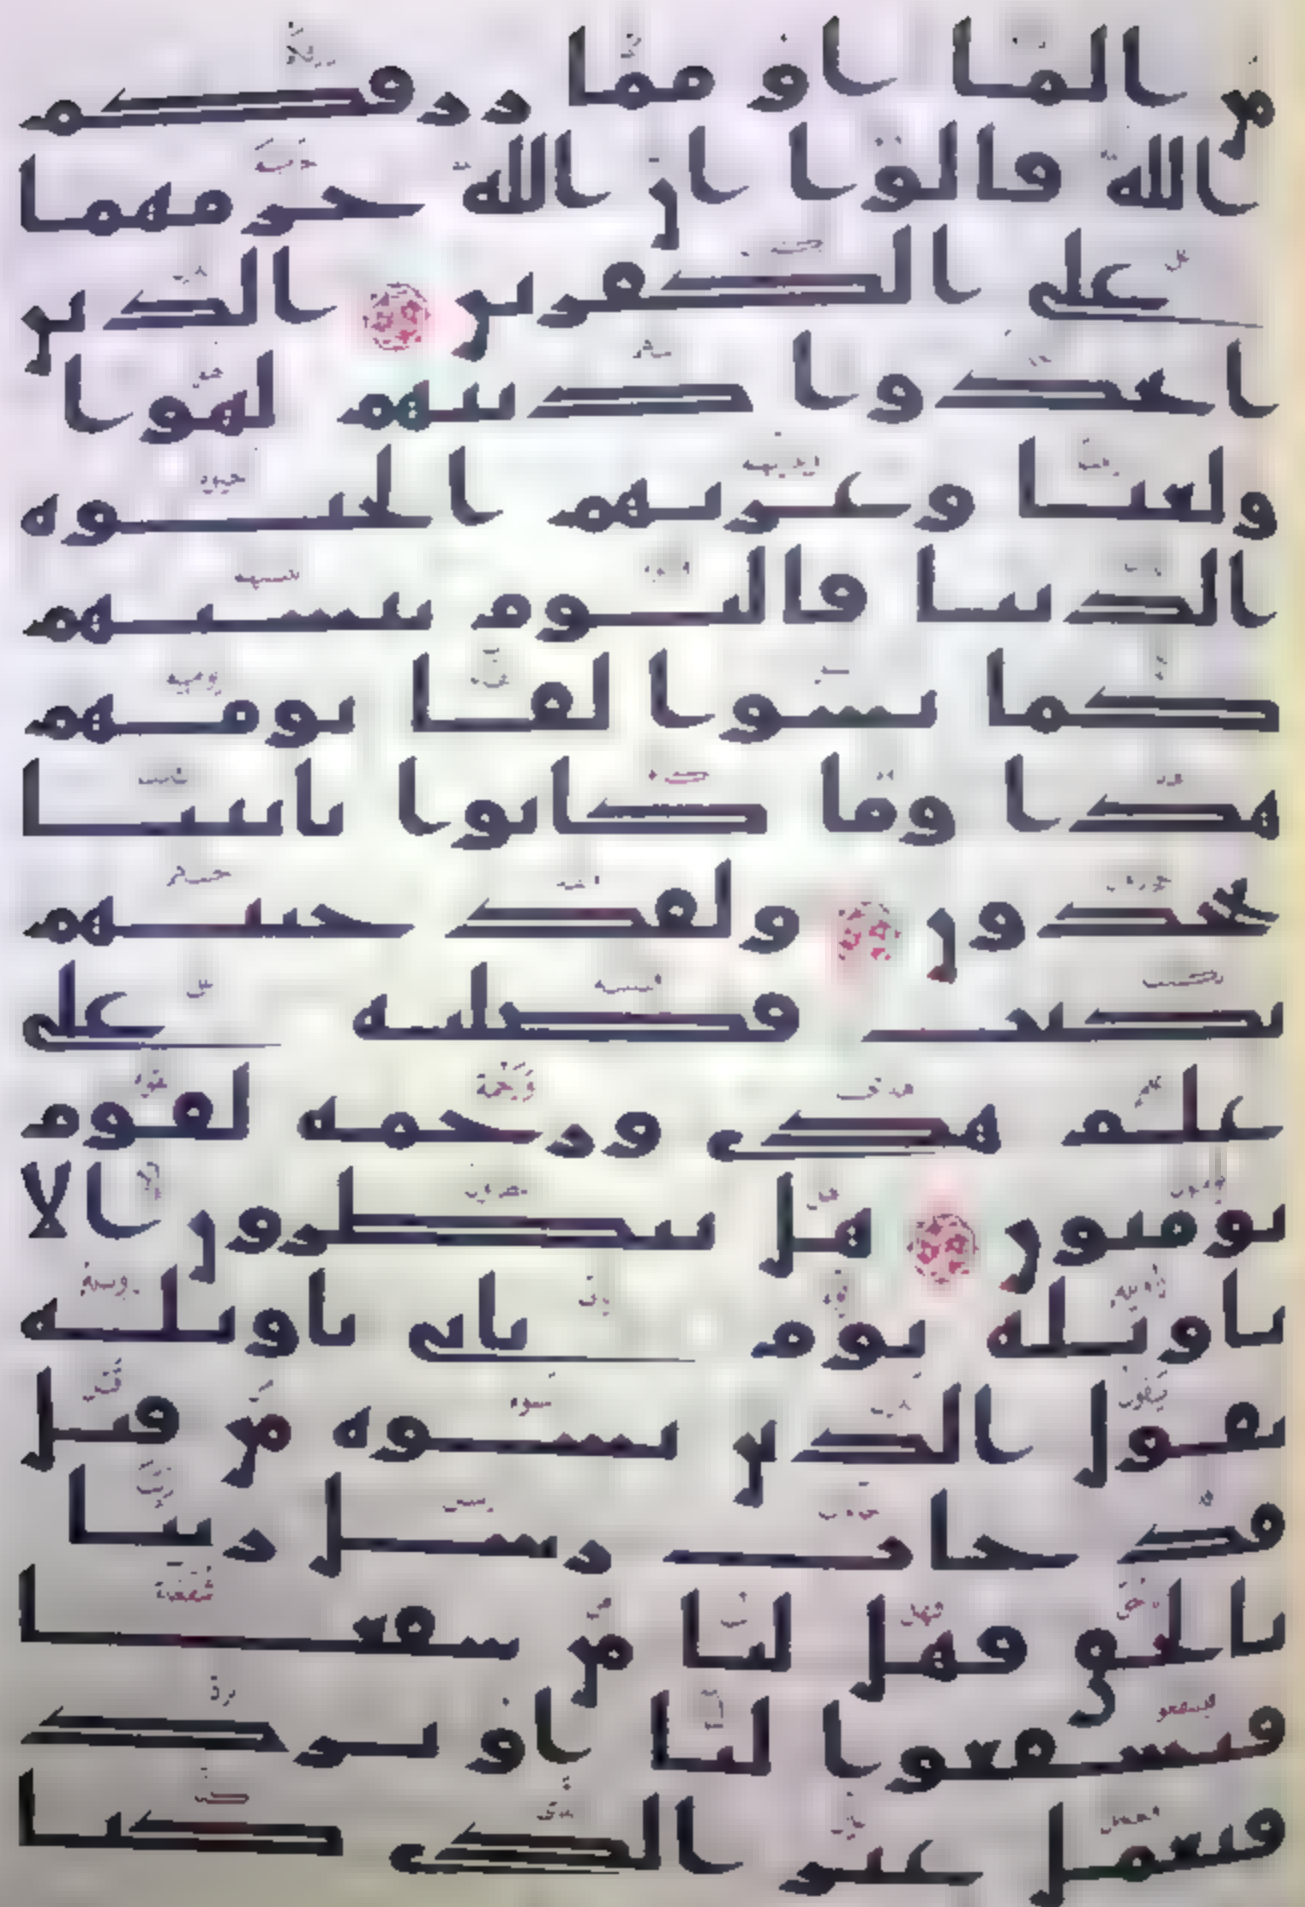 من الما او مما رزقكم
الله قالوا ان الله حرمهما
على الكفرين الذين
اتخذوا دينهم لهوا
ولعبا وغرتهم الحيوة
الدنيا فاليوم ننسيهم
كما نسوا لقا يومهم
هذا وما كانوا باييتنا
يجحدون ولقد جينهم
بكتب فصلنه على
علم هدى ورحمة لقوم
يومنون هل ينظرون الا
تاويله يوم ياتى تاويله
يقول الذين نسوه من قبل
قد جات رسل ربنا
بالحق فهل لنا من شفعا
فيشفعوا لنا او نرد
فنعمل غير الذى كنا